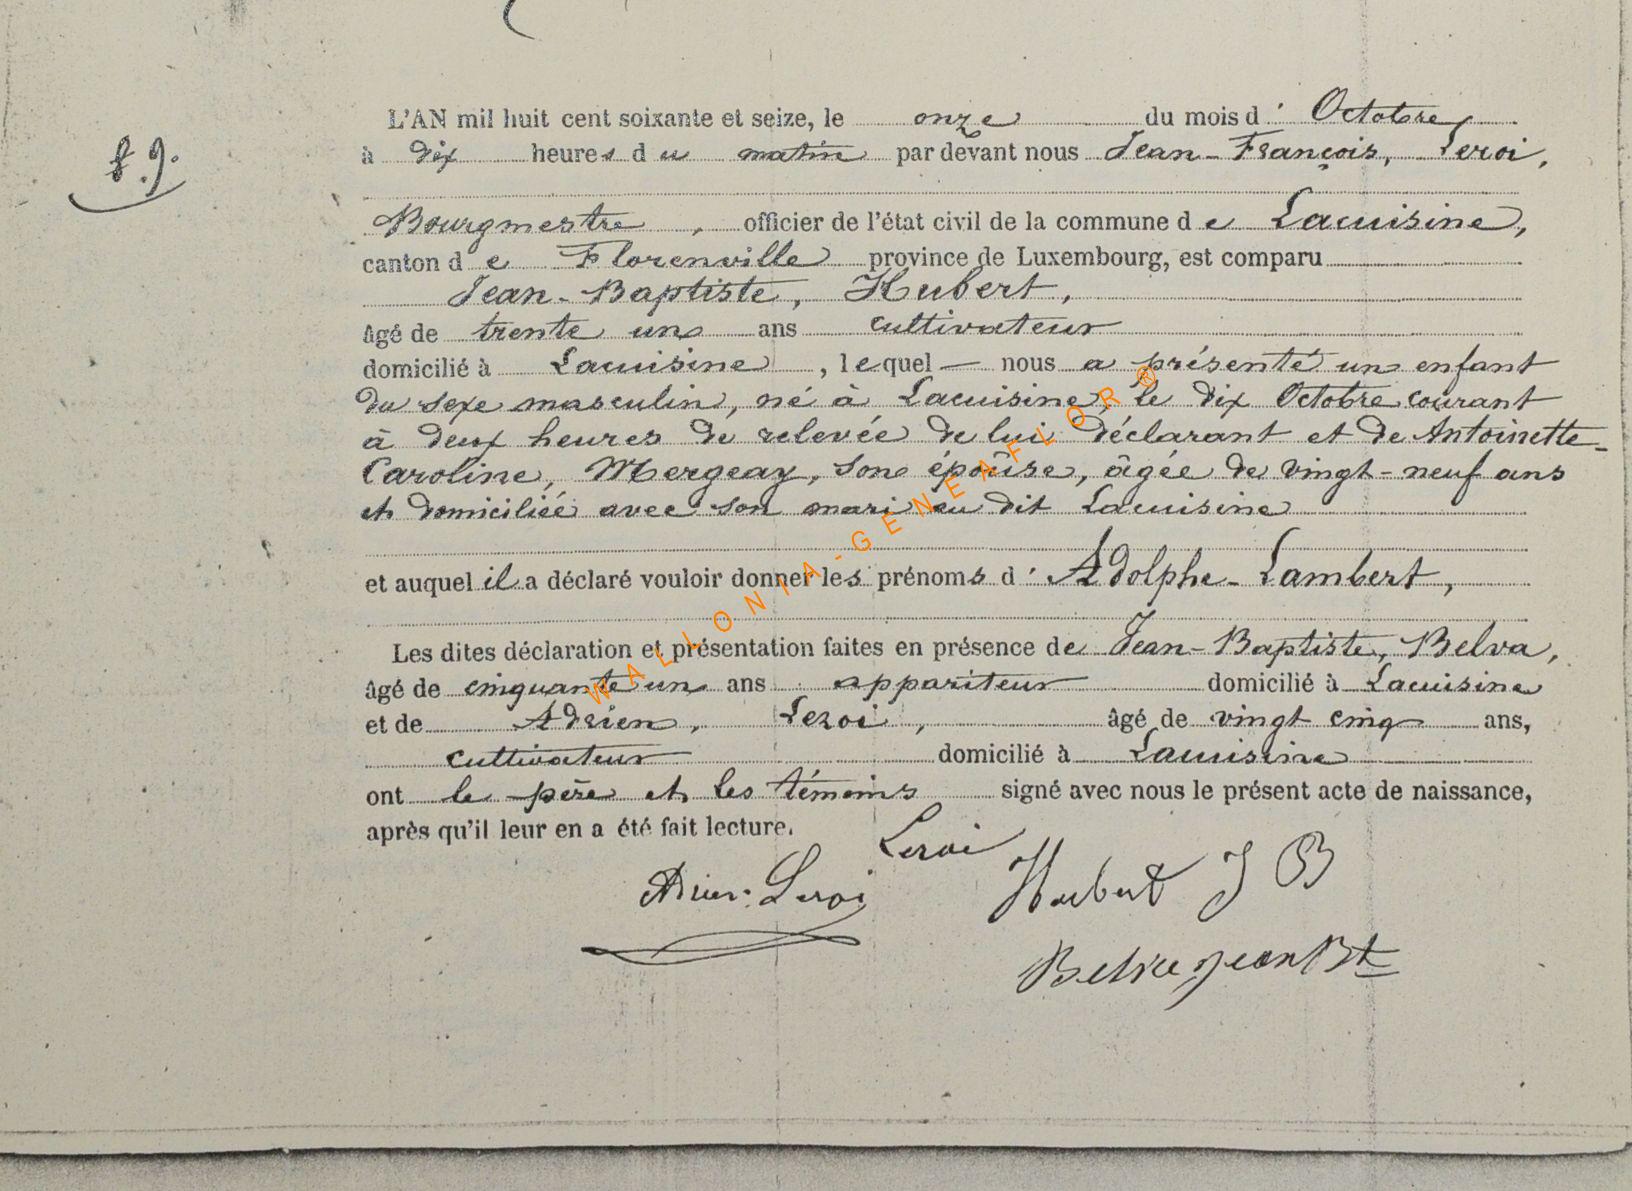 L'AN mil huit cent soixante et seize, le onze du mois d' Octobre
à dix heures du matin par devant nous Jean-François, Leroi,
Bourgmestre, officier de l'état civil de la commune de Lacuisine,
canton de Florenville province de Luxembourg, est comparu
Jean-Baptiste, Hubert,
âgé de trente un ans cultivateur
domicilié à Lacuisine, lequel — nous a présenté un enfant
du sexe masculin, né à Lacuisine, le dix Octobre courant
à deux heures de relevée de lui déclarant et de Antoinette-
Caroline, Mergeay, son épouse, âgée de vingt-neuf ans
et domiciliée avec son mari au dit Lacuisine
et auquel il a déclaré vouloir donner les prénoms d' Adolphe-Lambert,
Les dites déclaration et présentation faites en présence de Jean-Baptiste, Belva,
âgé de cinquante un ans appariteur domicilié à Lacuisine
et de Adrien, Leroi, âgé de vingt cinq ans,
cultivateur domicilié à Lacuisine
ont le père et les témoins signé avec nous le présent acte de naissance,
après qu'il leur en a été fait lecture.
Leroi
Adrien Leroi
Hubert J B
Belva Jean Bt
WALLONIA-GENEAFLOR®